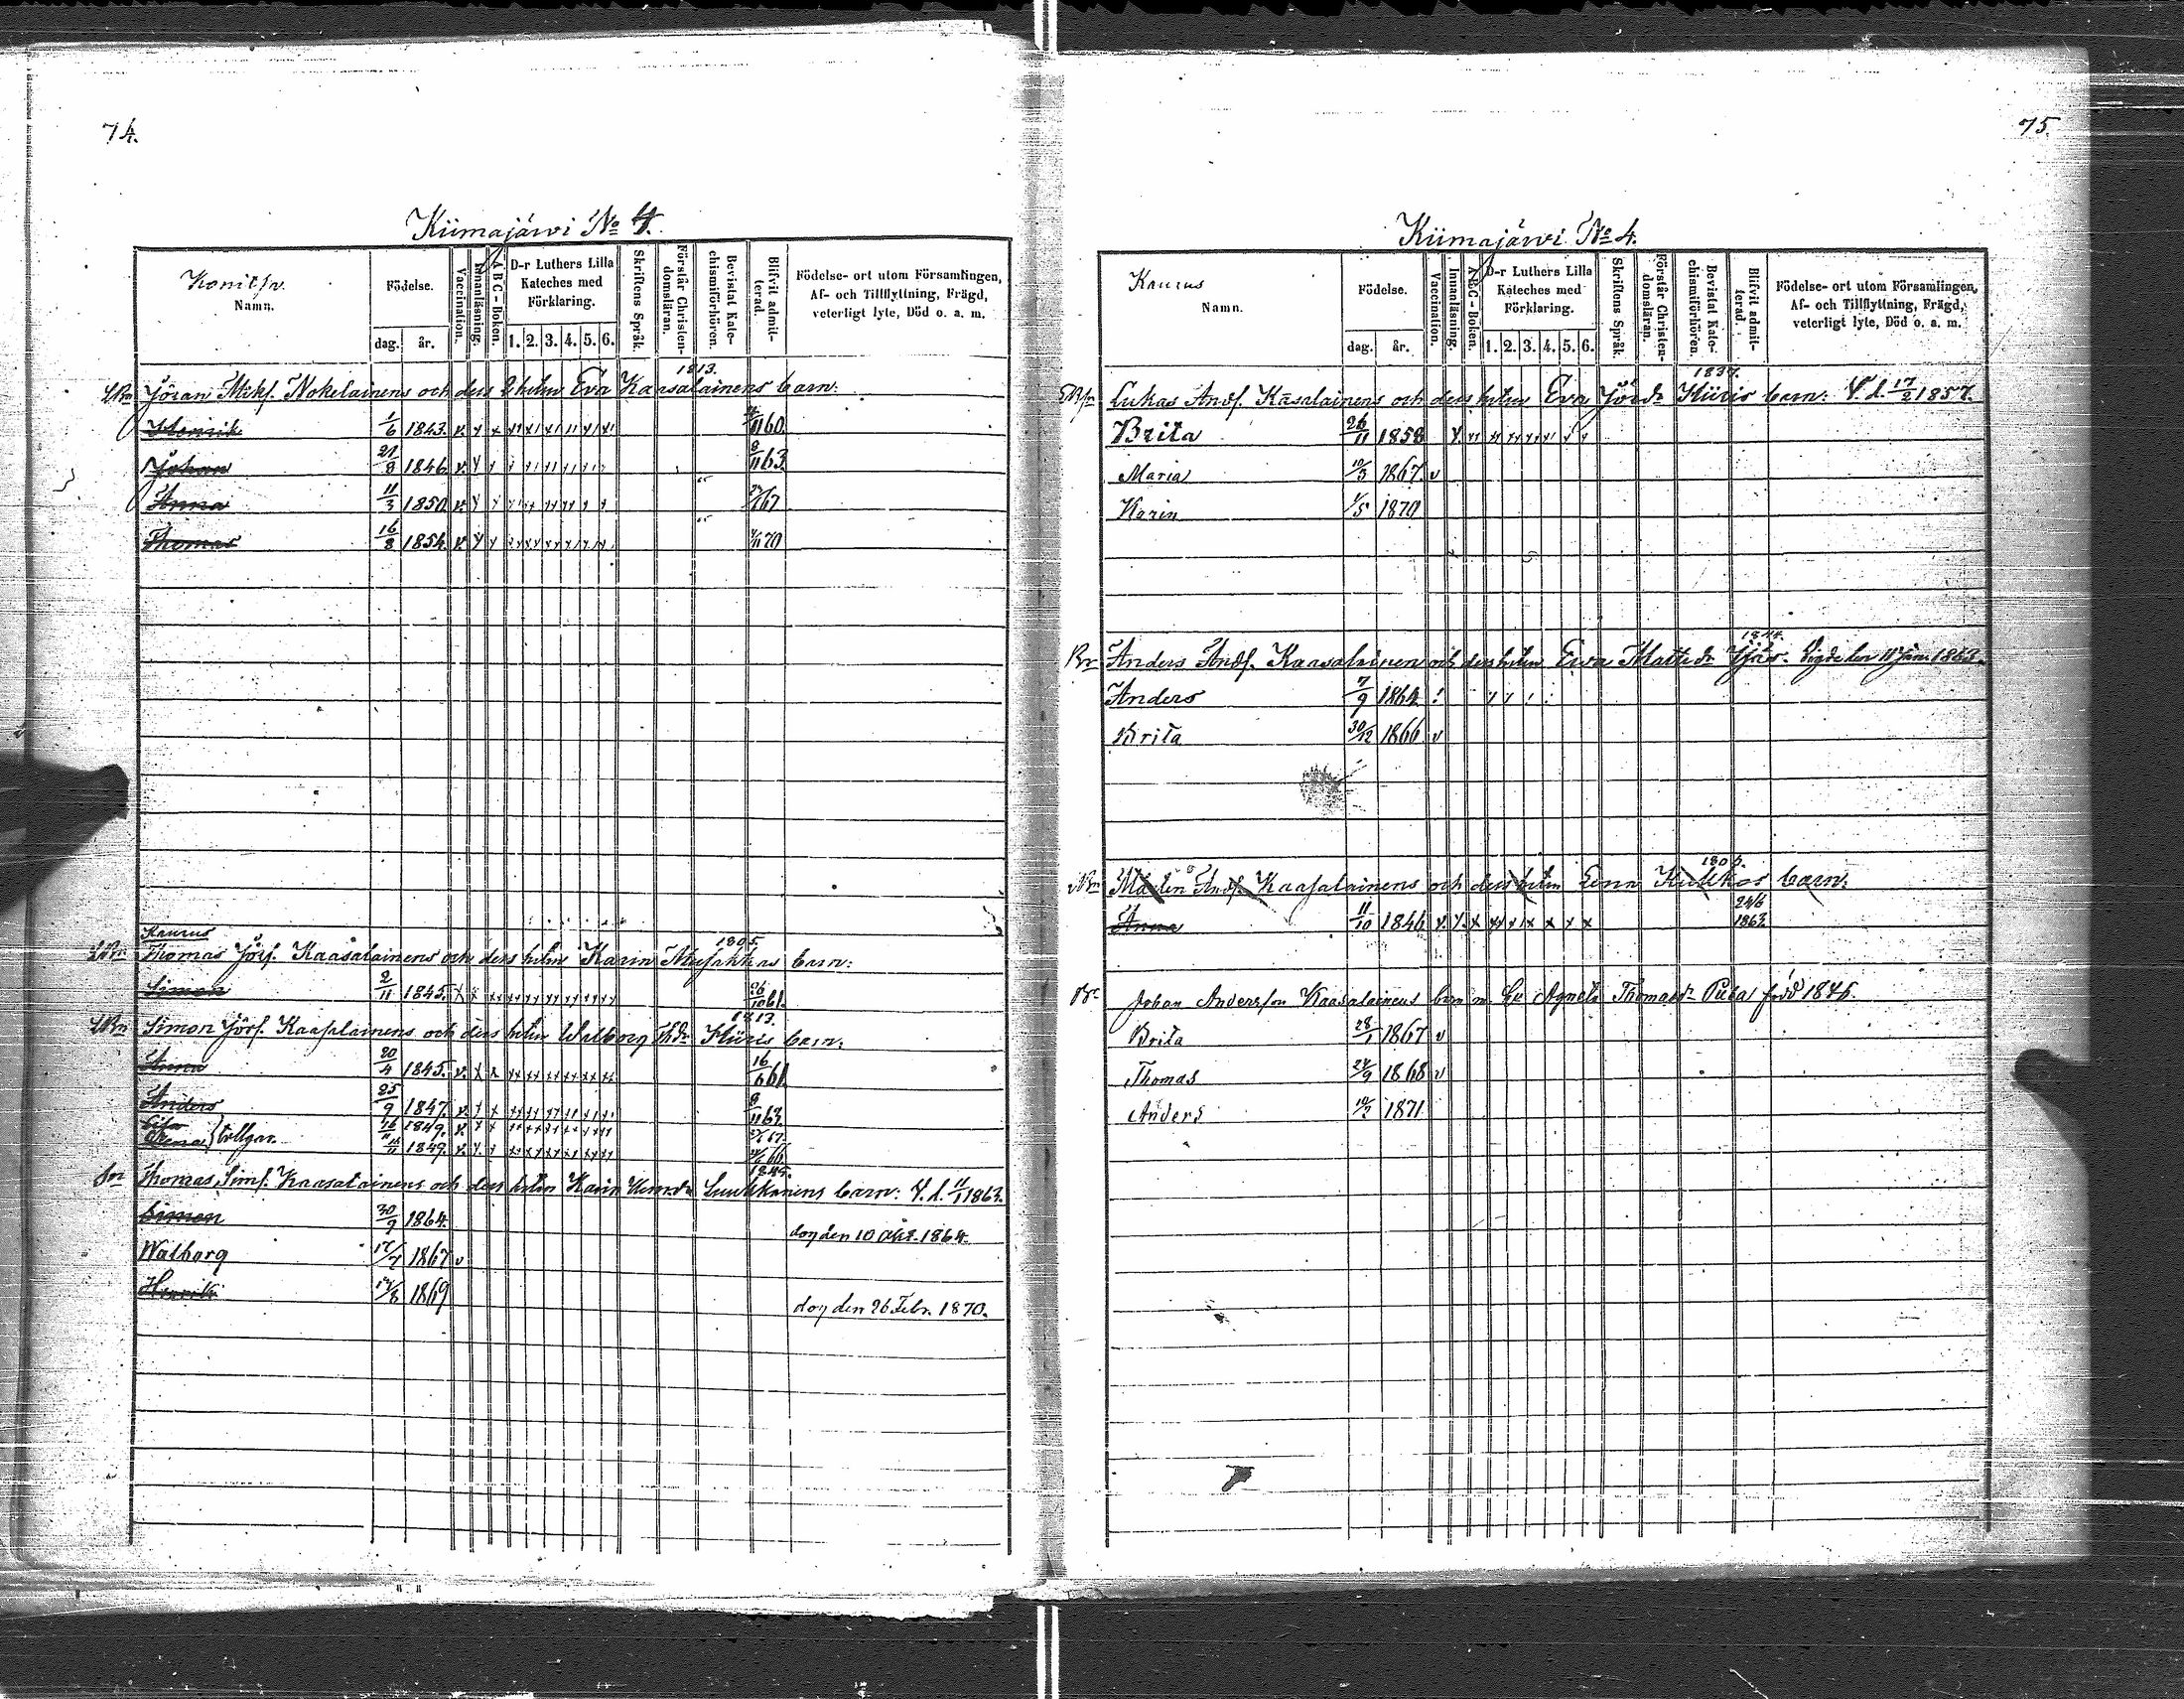 74.
Kiimajärvi No 4.
Namn.
Födelse.
dag. år.
Vaccination.
Innanläsning.
A B C-Boken.
D-r Luthers Lilla Kateches med Förklaring.
1. 2. 3. 4. 5. 6.
Skriftens Språk.
Förstår Christendomsläran.
Bevistat Katechismiförhören.
Blifvit admitterad.
Födelse- ort utom Församlingen, Af- och Tillflyttning, Frägd, veterligt lyte, Död o. a. m.
1813.
Jöran Mikf. Nokelainens och dess 2 hustru Eva Kaasalainens barn.
Henrik 1/6 1843. 60.
Johan 21/8 1846. 63.
Anna 11/3 1850. 67
Thomas 16/8 1854. 70
Kaurus
1805.
Thomas Jörf. Kaasalainens och dess hstru Karin barn:
Simon 2/11 1845. 26/10 61.
1813.
Simon Jörf. Kaasalainens och dess hstru Walborg Kiiris barn.
Anna 20/4 1845. 16/6 61
Anders 25/9 1847. 8/11 63.
1849. 67.
tvillgar.
1849. 66
1845.
Thomas Simf. Kaasalainens och dess hstru Karin Luukkanens barn: V. d. 11/1 1863.
Simon 30/9 1864. dog den 10 Okt. 1864.
Walborg 17/7 1867 v
Henrik 1869 dog den 26 Febr. 1870.
75.
Kiimajärvi No 4.
Kaurus
Namn.
Födelse.
dag. år.
Vaccination.
Innanläsning.
A B C-Boken.
D-r Luthers Lilla Kateches med Förklaring.
1. 2. 3. 4. 5. 6.
Skriftens Språk.
Förstår Christendomsläran.
Bevistat Katechismiförhören.
Blifvit admitterad.
Födelse- ort utom Församlingen, Af- och Tillflyttning, Frägd, veterligt lyte, Död o. a. m.
1837.
Lukas Andf. Kasalainens och dess hstru Eva Jördr Kiiris barn: V. d. 17/2 1857.
Brita 26/11 1858
Maria 10/3 1867. v
Karin 1/5 1870
1844.
Anders Andf. Kaasalainen och dess hstru Eva Mattsdr Vigde den 11 Jan. 1863.
Anders 7/9 1864
Brita 30/12 1866 v
1805.
Mårten Andf. Kaasalainens och dess hstru Lena Kukkos barn.
Anna 11/10 1846 24/6 1863.
Johan Andersson Kaasalainens barn m. Hu Agneta Thomasdr född 1845.
Brita 28/1 1867 v
Thomas 24/9 1868 v
Anders 1871